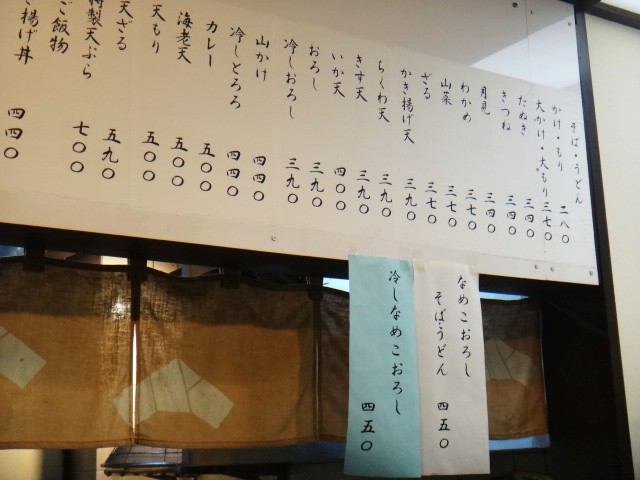 そば・うどん
かけ・もり 二八〇
大かけ・大もり 三七〇
たぬき 三四〇
きつね 三四〇
月見 三四〇
わかめ 三七〇
山菜 三七〇
ざる 三七〇
かき揚げ天 三九〇
ちくわ天 三九〇
きす天 三九〇
いか天 四〇〇
おろし 三九〇
冷しおろし 三九〇
山かけ 四四〇
冷しとろろ 四四〇
カレー 五〇〇
海老天 五〇〇
天もり 五〇〇
天ざる 五九〇
特製天ぷら 七〇〇
ご飯物
き揚げ丼 四四〇
なめこおろし
そばうどん 四五〇
冷しなめこおろし 四五〇